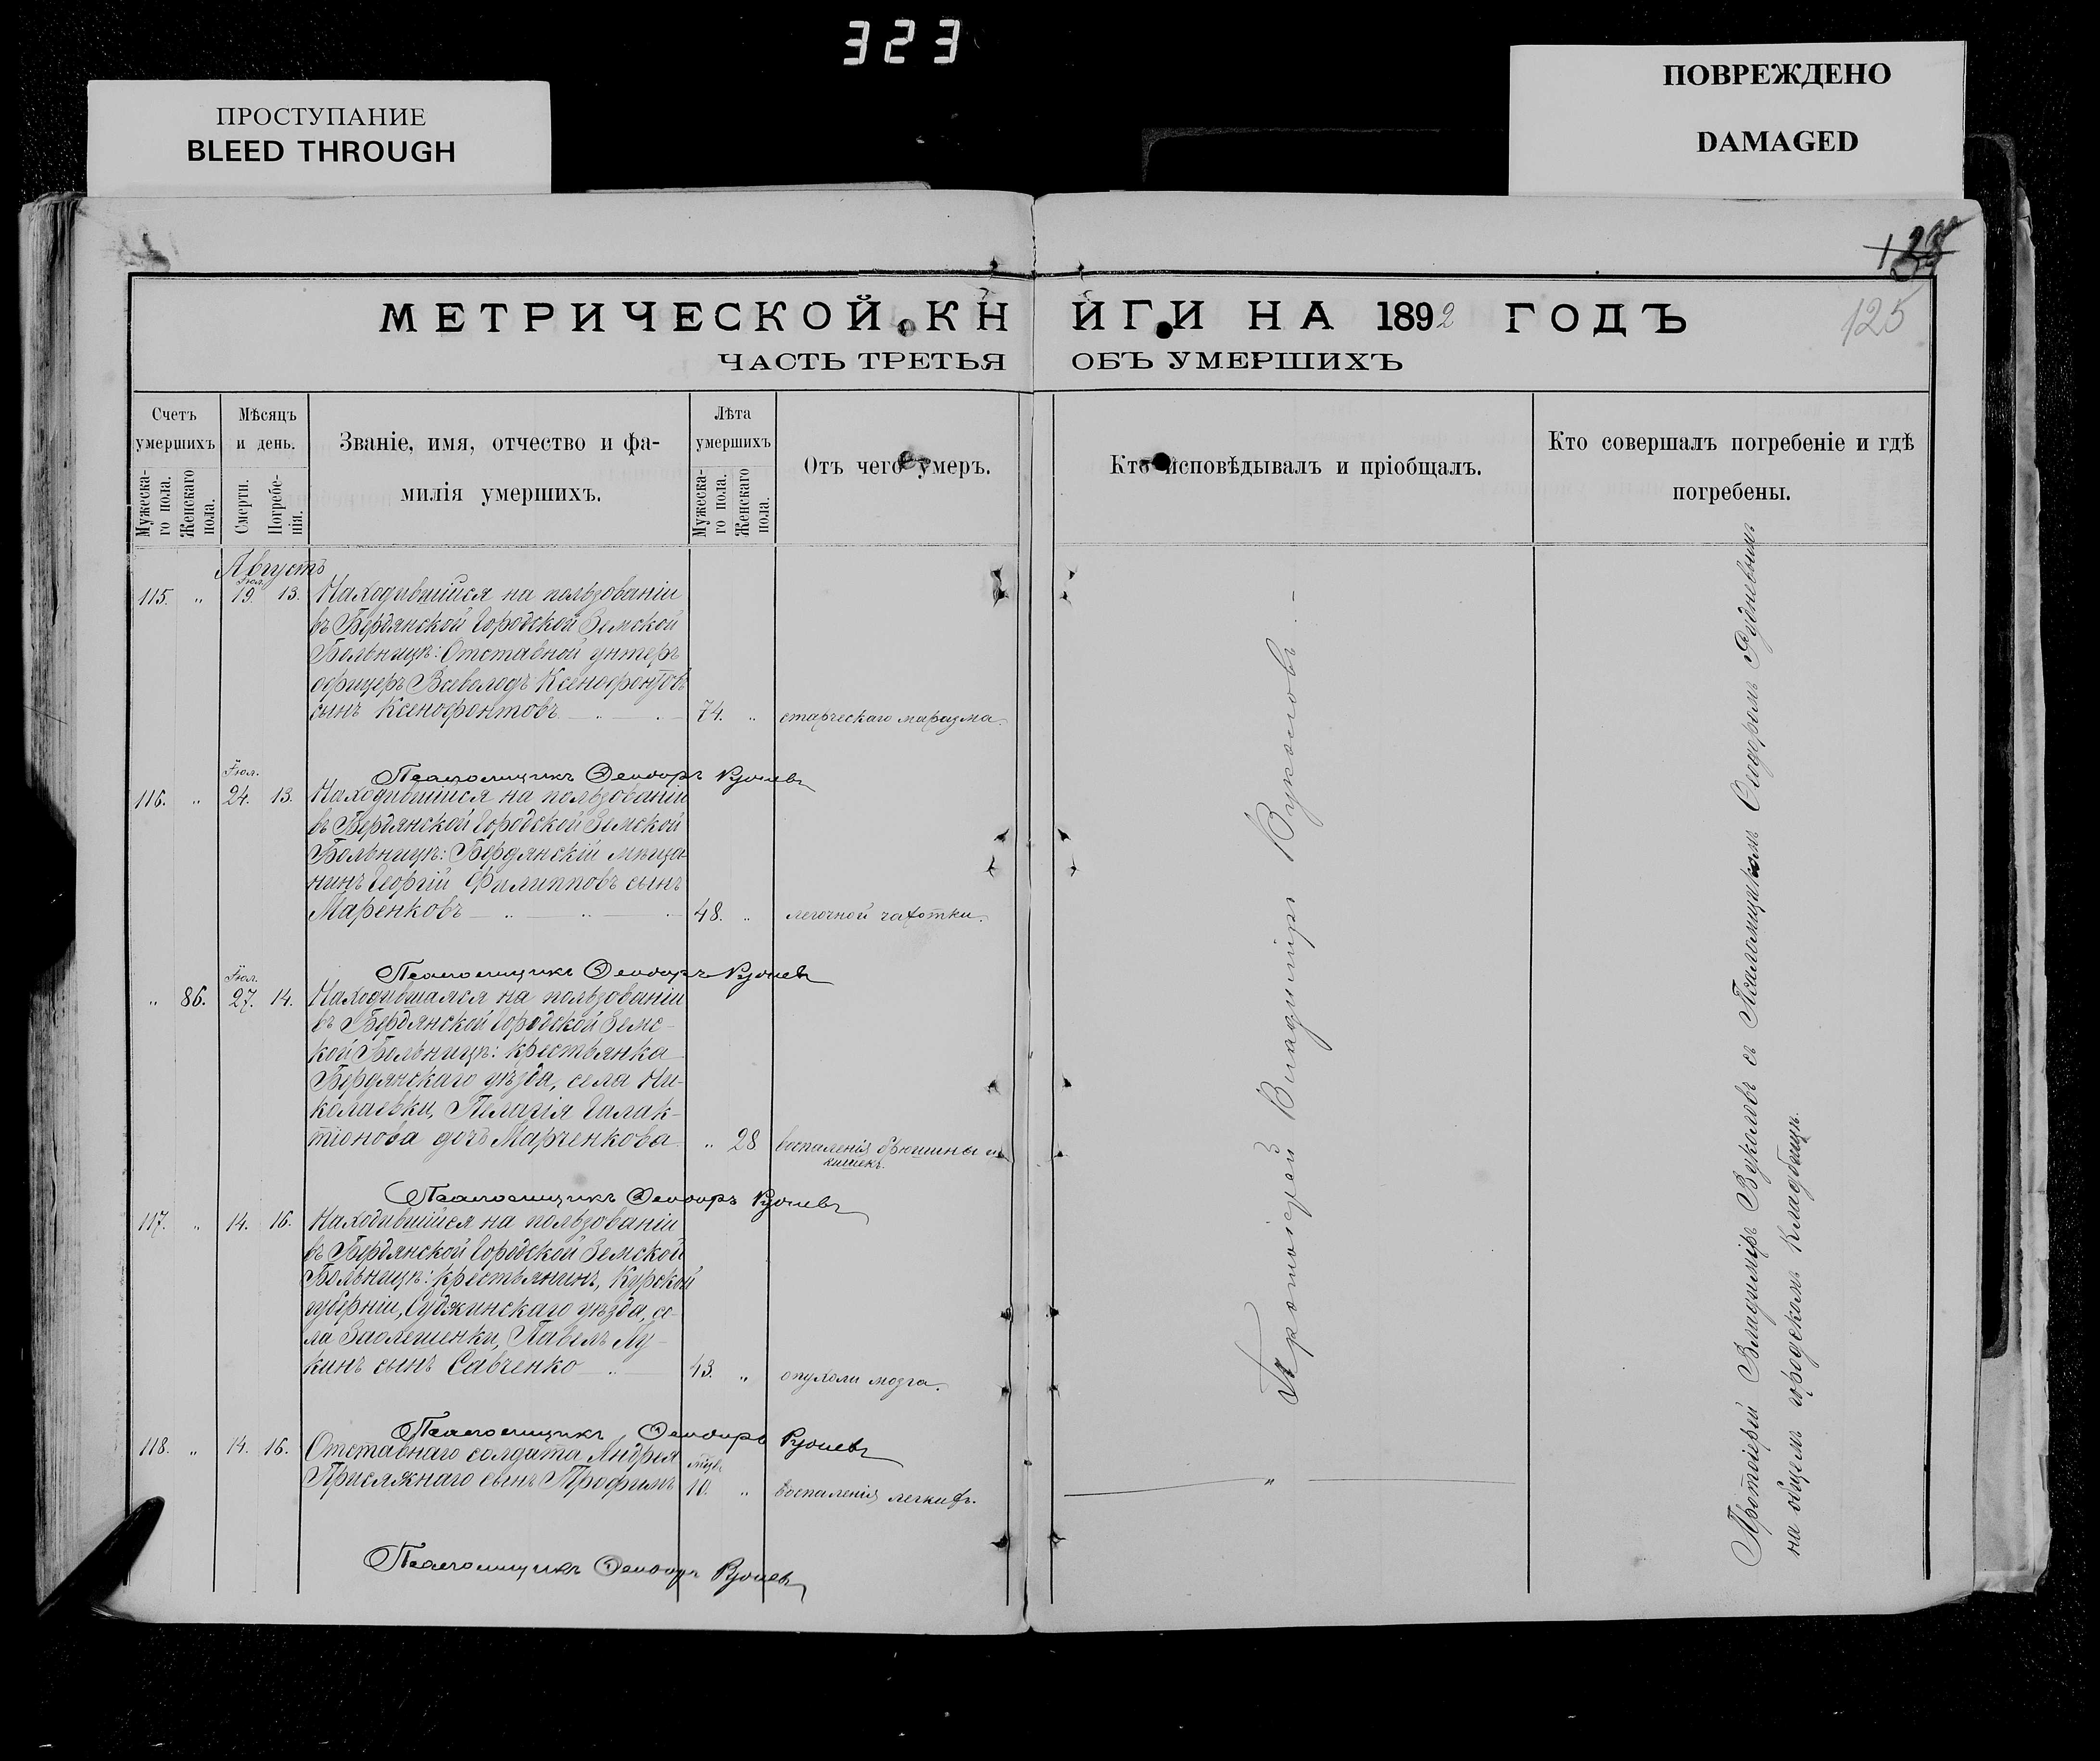 323
ПРОСТУПАНИЕ
BLEED THROUGH
ПОВРЕЖДЕНО
DAMAGED
125
МЕТРИЧЕСКОЙ КН ИГИ НА 1892 ГОДЪ
ЧАСТЬ ТРЕТЬЯ ОБЪ УМЕРШИХЪ
Счетъ умершихъ
Мужеска-го пола.
Женскаго пола.
Мѣсяцъ и день.
Смерти.
Погребе-нія.
Званіе, имя, отчество и фа-
милія умершихъ.
Лѣта умершихъ
Мужеска-го пола.
Женскаго пола.
Отъ чего умеръ.
Кто исповѣдывалъ и пріобщалъ.
Кто совершалъ погребеніе и гдѣ
погребены.
Августъ
Іюл.
115. " 19. 13. Находившійся на пользованіи
въ Бердянской Городской Земской
Больницѣ: Отставной унтеръ
офицеръ Всеволодъ Ксенофонтовъ
сынъ Ксенофонтовъ 74. " старческаго маразма.
Псаломщикъ Ѳеодоръ Рудневъ
Іюл.
116. " 24. 13. Находившійся на пользованіи
въ Бердянской Городской Земской
Больницѣ: Бердянскій мѣща-
нинъ Георгій Филипповъ сынъ
Маренковъ 48. " легочной чахотки.
Псаломщикъ Ѳеодоръ Рудневъ
Іюл.
" 86. 27. 14. Находившаяся на пользованіи
въ Бердянской Городской Земс-
кой Больницѣ: крестьянка
Бердянскаго уѣзда, села Ни-
колаевки, Пелагія Галак-
тіонова дочь Марченкова " 28 воспаленія брюшины и
кишекъ.
Псаломщикъ Ѳеодоръ Рудневъ
117. " 14. 16. Находившійся на пользованіи
въ Бердянской Городской Земской
Больницѣ: крестьянинъ, Курской
губерніи, Суджинскаго уѣзда, се-
ла Заолешенки, Павелъ Лу-
кинъ сынъ Савченко 43. " опухоли мозга.
Псаломщикъ Ѳеодоръ Рудневъ
118. " 14. 16. Отставнаго солдата Андрея
мѣс.
Присяжнаго сынъ Трофимъ 10. " воспаленія легкихъ.
Псаломщикъ Ѳеодоръ Рудневъ
Протоіерей Владиміръ Вуколовъ
"
Протоіерей Владиміръ Вуколовъ съ Псаломщикомъ Ѳеодоромъ Рудневымъ
на общемъ городскомъ кладбищѣ.